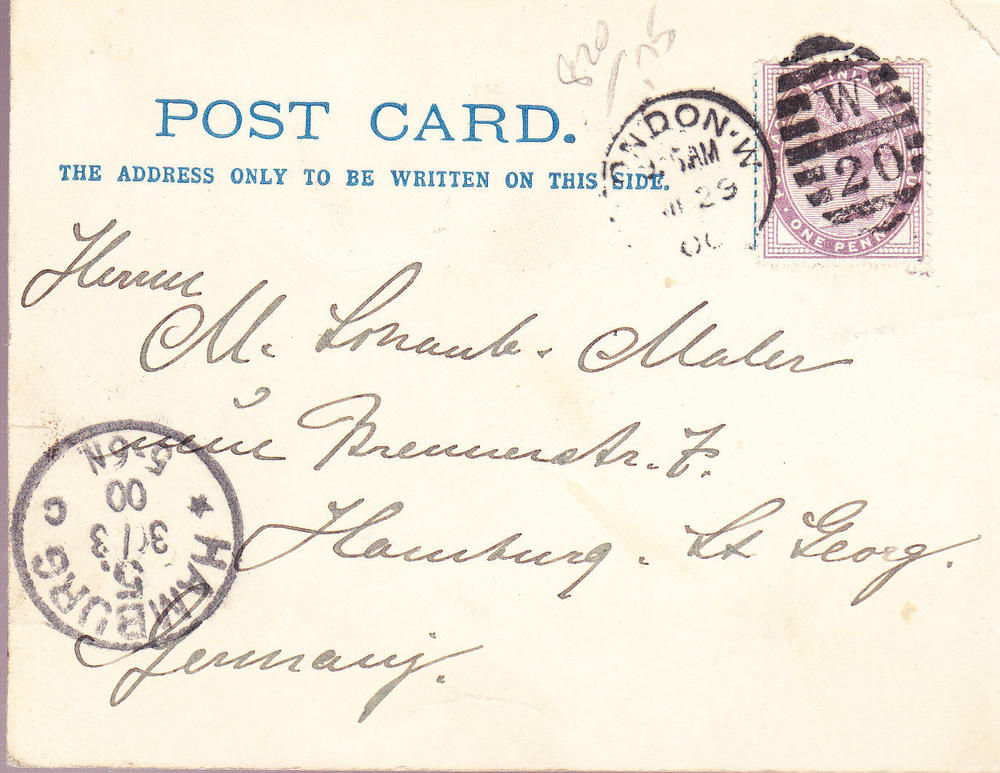 820
POST CARD.
THE ADDRESS ONLY TO BE WRITTEN ON THIS SIDE.
LONDON·W
AM
29
00
W
20
ONE PENNY
Herrn
M.
Maler
Brennerstr. 7.
Hamburg. St Georg.
Germany.
HAMBURG
5
00
5-6N
C